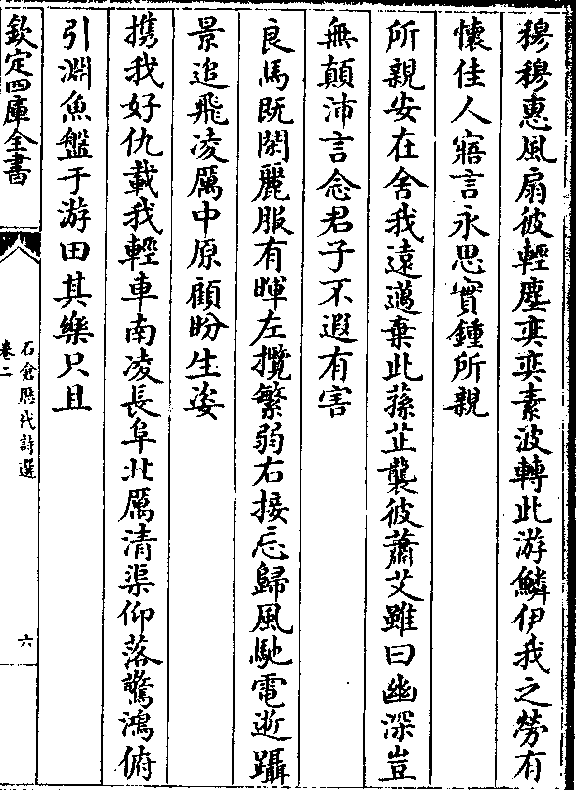 穆穆惠風扇彼輕塵奕奕素波轉此游鱗伊我之勞有
懷佳人寤言永思實鍾所親
所親安在舍我遠邁棄此蓀芷襲彼蕭艾雖曰幽深豈
無顛沛言念君子不遐有害
良馬既閑麗服有暉左攬繁弱右接忘歸風馳電逝躡
景追飛凌厲中原顧盼生姿
攜我好仇載我輕車南凌長阜北厲清渠仰落驚鴻俯
引淵魚盤于游田其樂只且
欽定四庫全書
石倉歷代詩選
卷二
六